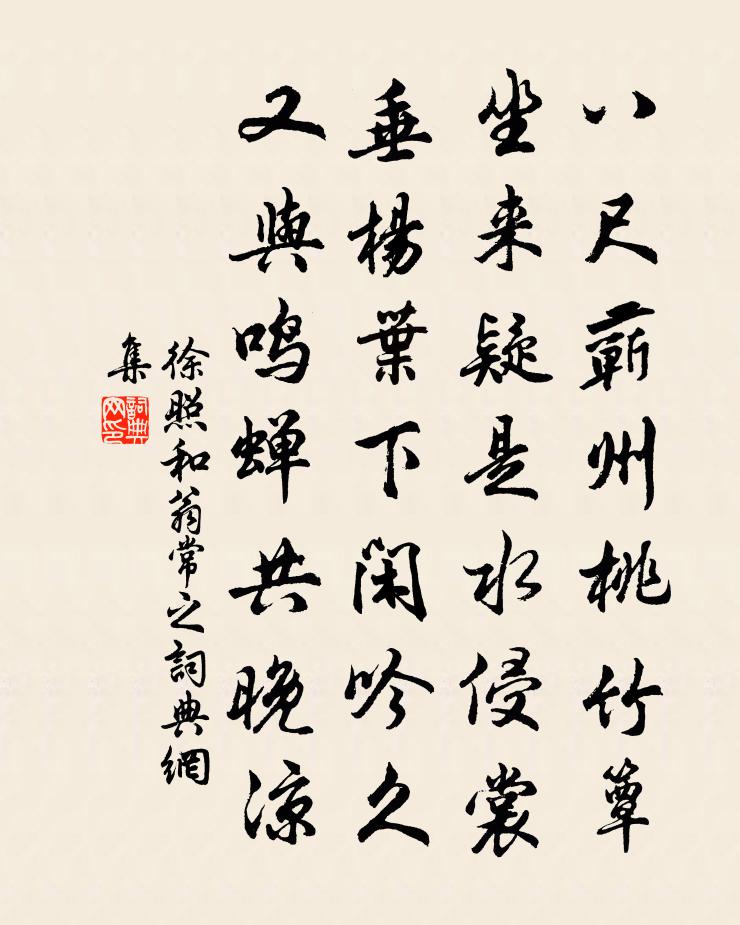 八尺蕲州桃竹簟
坐来疑是水侵裳
垂楊葉下閑吟久
又與鸣蝉共晚凉
徐照和翁常之詞典網
集
詞典
网印